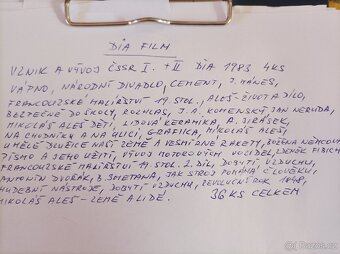 DIA FILM
VZNIK A VÝVOJ ČSSR I. + II DIA 1983 4KS
VÁPNO, NÁRODNÍ DIVADLO, CEMENT, J. MÁNES,
FRANCOUZSKÉ MALÍŘSTVÍ 19. STOL., ALEŠ-ŽIVOT A DÍLO,
BEZPEČNĚ DO ŠKOLY, ROZHLAS, J.A. KOMENSKÝ, JAN NERUDA,
MIKOLÁŠ ALEŠ DĚTI, LIDOVÁ KERAMIKA, A. JIRÁSEK,
NA CHODNÍKU A NA ULICI, GRAFICA, MIKOLÁŠ ALEŠ
UMĚLÉ DRUŽICE NAŠÍ ZEMĚ A VESMÍRNÉ RAKETY, BOŽENA NĚMCOVÁ
PÍSMO A JEHO UŽITÍ, VÝVOJ MOTOROVÝCH VOZIDEL, ZDENĚK FIBICH
FRANCOUZSKÉ MALÍŘSTVÍ 19. STOL. 2. DÍL, DOBYTÍ VZDUCHU,
ANTONÍN DVOŘÁK, B. SMETANA, JAK STROJ POMÁHÁ ČLOVĚKU,
HUDEBNÍ NÁSTROJE, DOBYTÍ VZDUCHU, REVOLUČNÍ ROK 1848,
MIKOLÁŠ ALEŠ - ZEMĚ A LIDÉ. 36 KS CELKEM